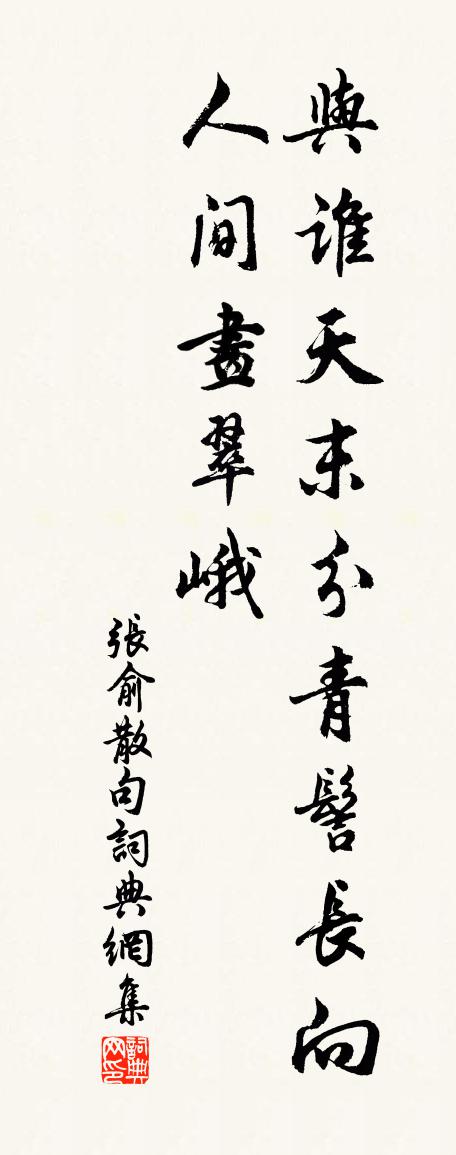 與誰天末分青髻長向
人間畫翠峨
張俞散句詞典網集
詞典
网印